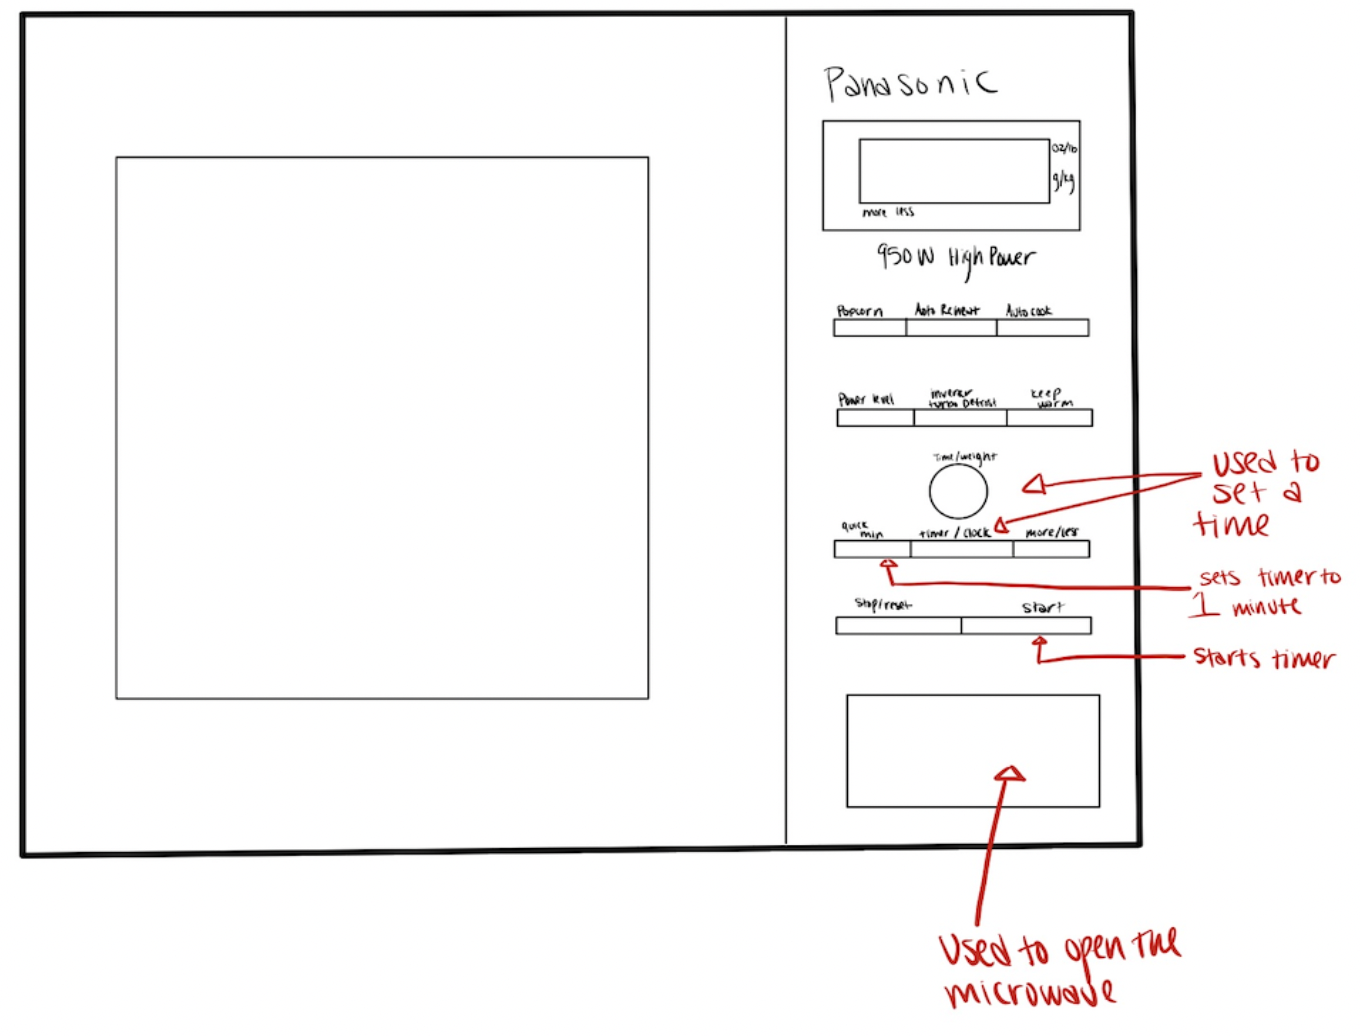 Panasonic
oz/lb
g/kg
more less
950W High Power
Popcorn Auto Reheat Auto cook
Power level
inverter
turbo Defrost
keep
warm
Time/weight
quick
min
timer / clock
more/less
Stop/reset
start
Used to
set a
time
sets timer to
1 minute
starts timer
Used to open the
microwave